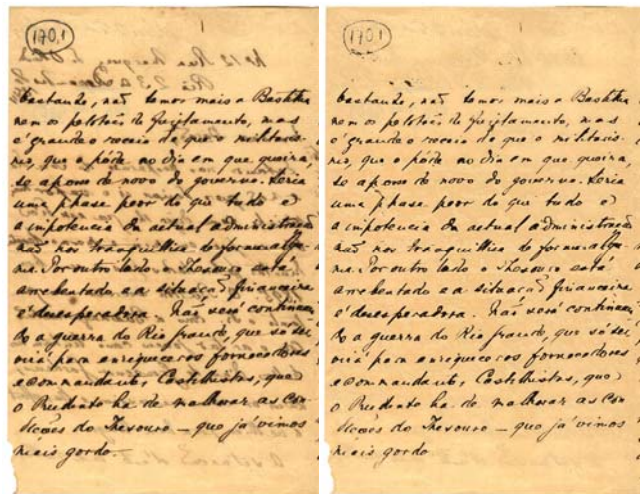 1701
bastante, não temos mais a Bastilha
nem os pelotões de fuzilamento, mas
é grande o receio de que o militaris-
mo, que o póde no dia em que queira,
se aposse de novo do governo. Seria
uma phase peor do que tudo e
a impotencia da actual administração
não nos tranquillisa de forma algu-
ma. Por outro lado o Thesouro está
arrebentado e a situação financeira
é desesperadora. Não será continuan
do a guerra do Rio Grande, que só ser
virá para enriquecer os fornecedores
e commandantes Castilhistas, que
o Prudente ha de melhorar as con
dicções do Thesouro — que já vimos
mais gordo.
1701
bastante, não temos mais a Bastilha
nem os pelotões de fuzilamento, mas
é grande o receio de que o militaris-
mo, que o póde no dia em que queira,
se aposse de novo do governo. Seria
uma phase peor do que tudo e
a impotencia da actual administração
não nos tranquillisa de forma algu-
ma. Por outro lado o Thesouro está
arrebentado e a situação financeira
é desesperadora. Não será continuan
do a guerra do Rio Grande, que só ser
virá para enriquecer os fornecedores
e commandantes Castilhistas, que
o Prudente ha de melhorar as con
dicções do Thesouro — que já vimos
mais gordo.